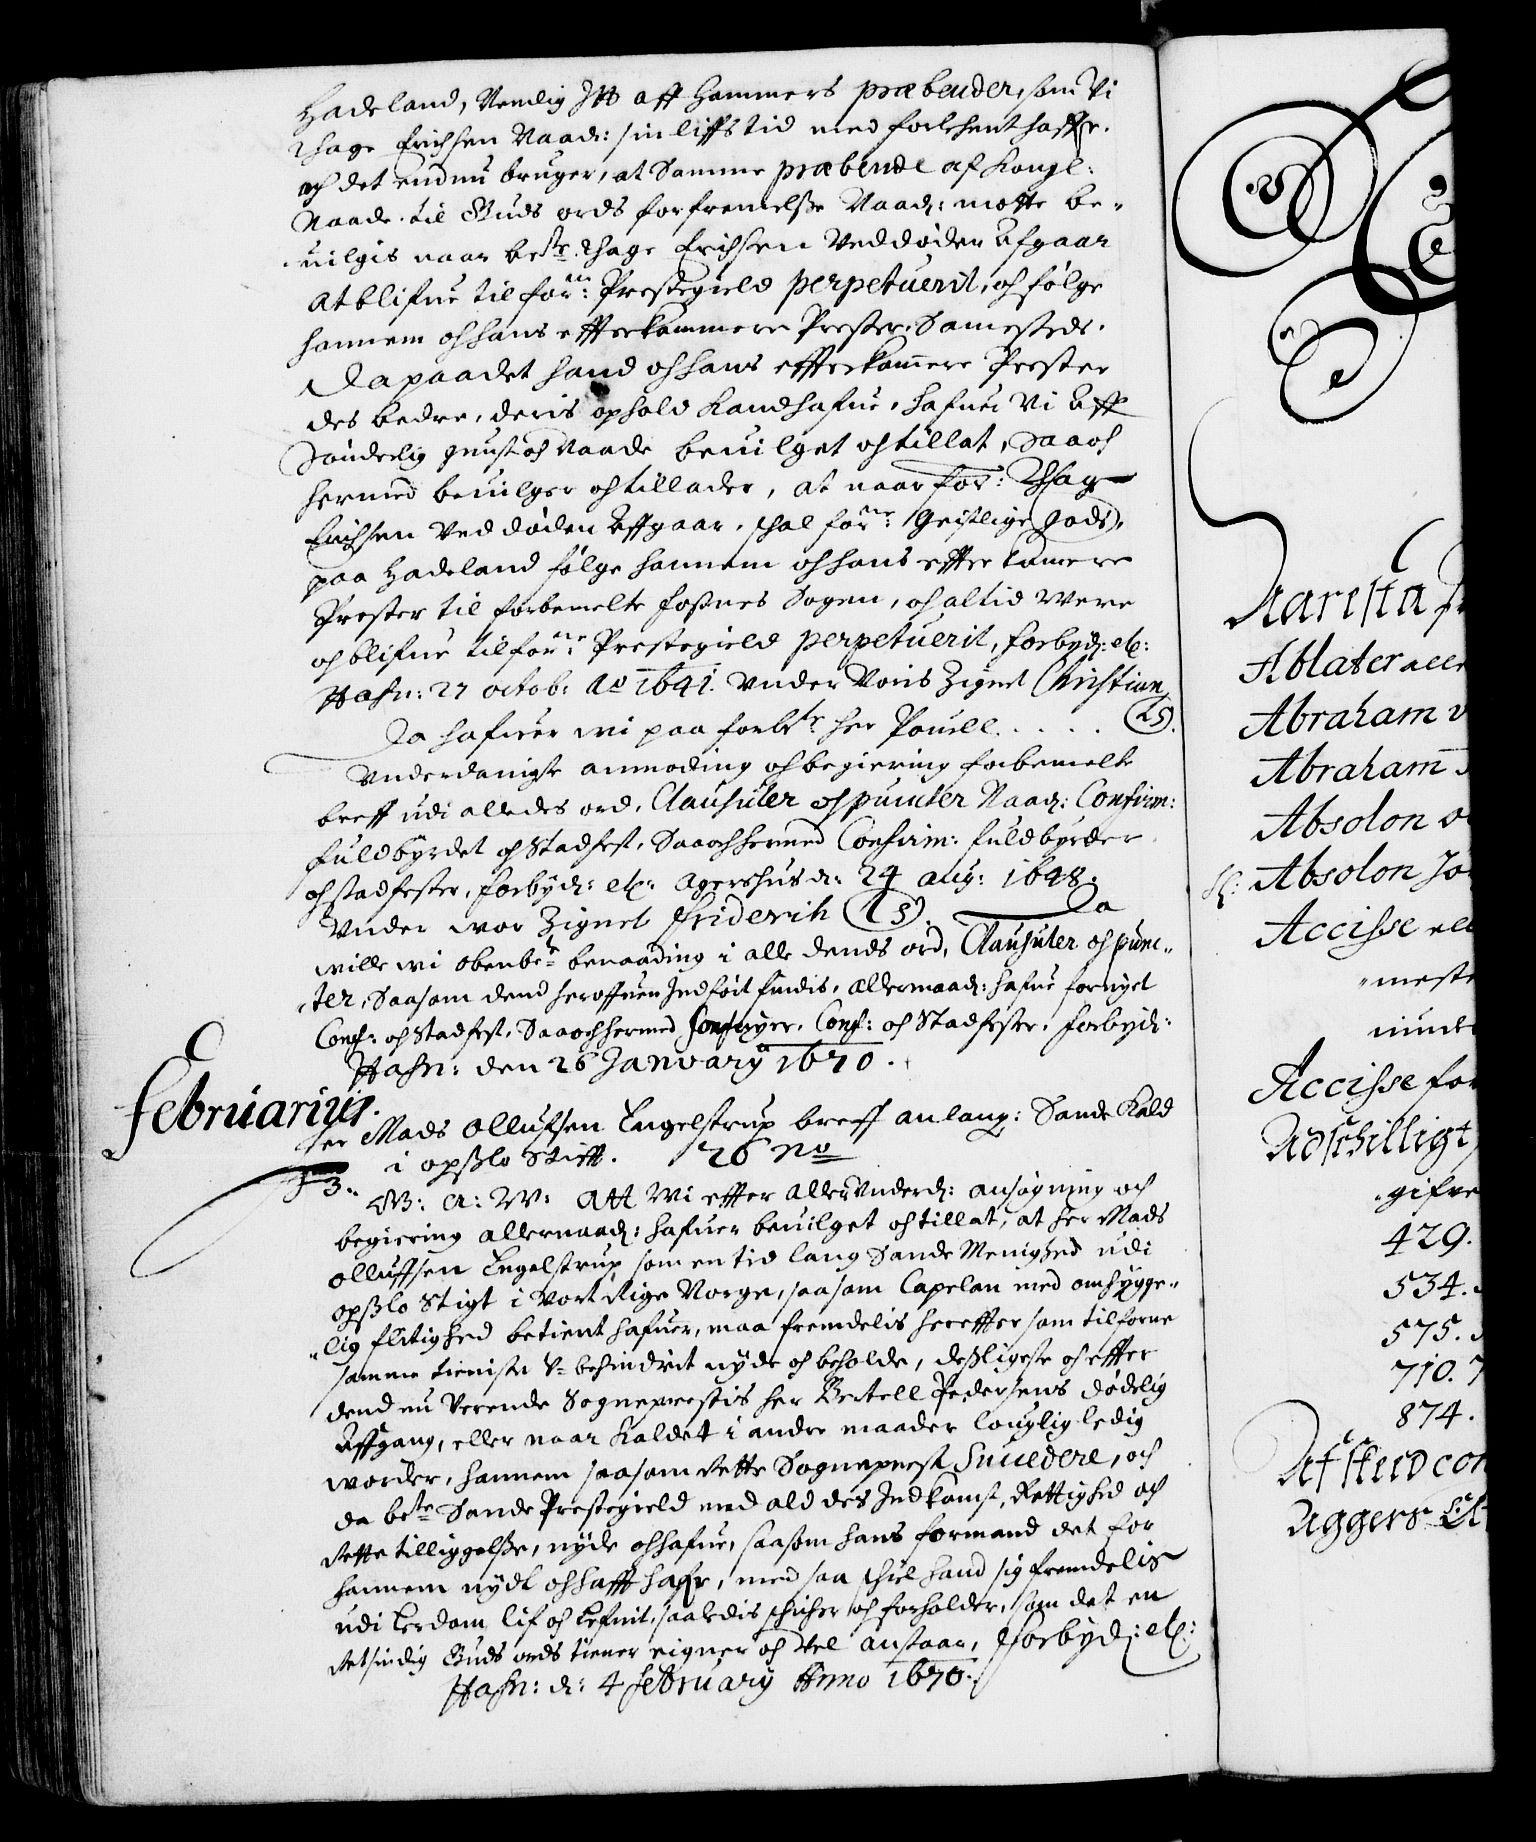 Hadeland, Nemlig Itt aff Hammers præbender, som Vi
Thage Erichsen Naad: sin liffs tid med forlehent haffr.
och det endnu bruger, at Samme præbende af Kongl:
Naade til Guds ords forfremelsse Naad: motte be-
uilgis naar beste. Thage Erichsen Ved døden Afgaar
At blifue til forne: Prestegield perpetuerit, och følge
hannem och hans effterkommere Prester Samesteds.
Da paa det hand och hans effterkomere Prester
des bedre, deris ophold kand hafue, hafuer Vi Aff
Sønderlig gunst och Naade beuilget och tillat, Saa och
hermed beuilger och tillader, at naar for: Thage
Erichsen Ved døden Affgaar, schal forne: Geistlige gods,
paa Hadeland følge hannem och hans effter komere
Prester til forbemelte Fossnes Sogen, och altid were
och blifue til forne: Prestegield perpetuerit, Forbyd: etc:
Hafn: 27 octob: Ao 1641. Vnder Voris Zignet Christian
(LS).
Da hafuer wi paa forbte her Pouell . . . . .
Vnderdanigste anmoding och begiering forbemelte
breff udi alle des ord, Clausuler och puncter Naad: Confirm:
fuldbyrdet och Stadfest, Saa och hermed Confirm: fuldbyrder
och stadfester, Forbyd: etc: Agershus d: 24 aug: 1648.
Vnder wor Zignet Friderich (LS). Da
wille wi obenbte benaading i alle dends ord, Clausuler och punc-
ter, Saasom dend heroffuen Indført findis, Allernaad: hafue fornyet
Conf: och Stadfest, Saa och hermed fornyer, Conf: och Stadfester. Forbyd:
Hafn: den 26 January 1670.
Februarius.
Her Mads Olluffsen Engelstrup breff anlang: Sande Kald
i opsslo Stifft. 26 No
3. G: A: W: Att Wi effter allervnderd: ansøgning och
begiering allernaad: hafuer beuilget och tillat, at her Mads
Olluffsen Engelstrup som en tid lang Sande Menighed udi
opsslo Stigt i Vort Rige Norge, saasom Capelan med omhygge-
lig flitighed betient hafuer, maa fremdelis hereffter som tilforne
samme tieniste V-behindret nyde och beholde, desligeste och effter
dend nu Verende Sogneprestis her Bertell Pedersens dødelig
Affgang, eller naar Kaldet i andre maader louglig ledig
worder, hannem saasom rette Sogneprest Succedere, och
da beste Sande Prestegield med ald des Indkomst, Rettighed och
rette tilliggelsse, nyde och hafue, saasom hans formand det for
hannem nydt och hafft hafr, med saa schiel hand sig fremdelis
udi Lerdom lif och Lefnit, saaledis schicher och forholder, som det en
retsindig Guds ords tiener eigner och Vel anstaar, Forbyd: etc:
Hafn: d: 4 February Anno 1670.
Aaresta
Ablater alle
Abraham v
Abraham
Absolon
Absolon Jo
Accisse
meste
Accisse for
Adschilligt
gifve
429.
534.
575.
710. 7
874.
Afskeed con
Aggers